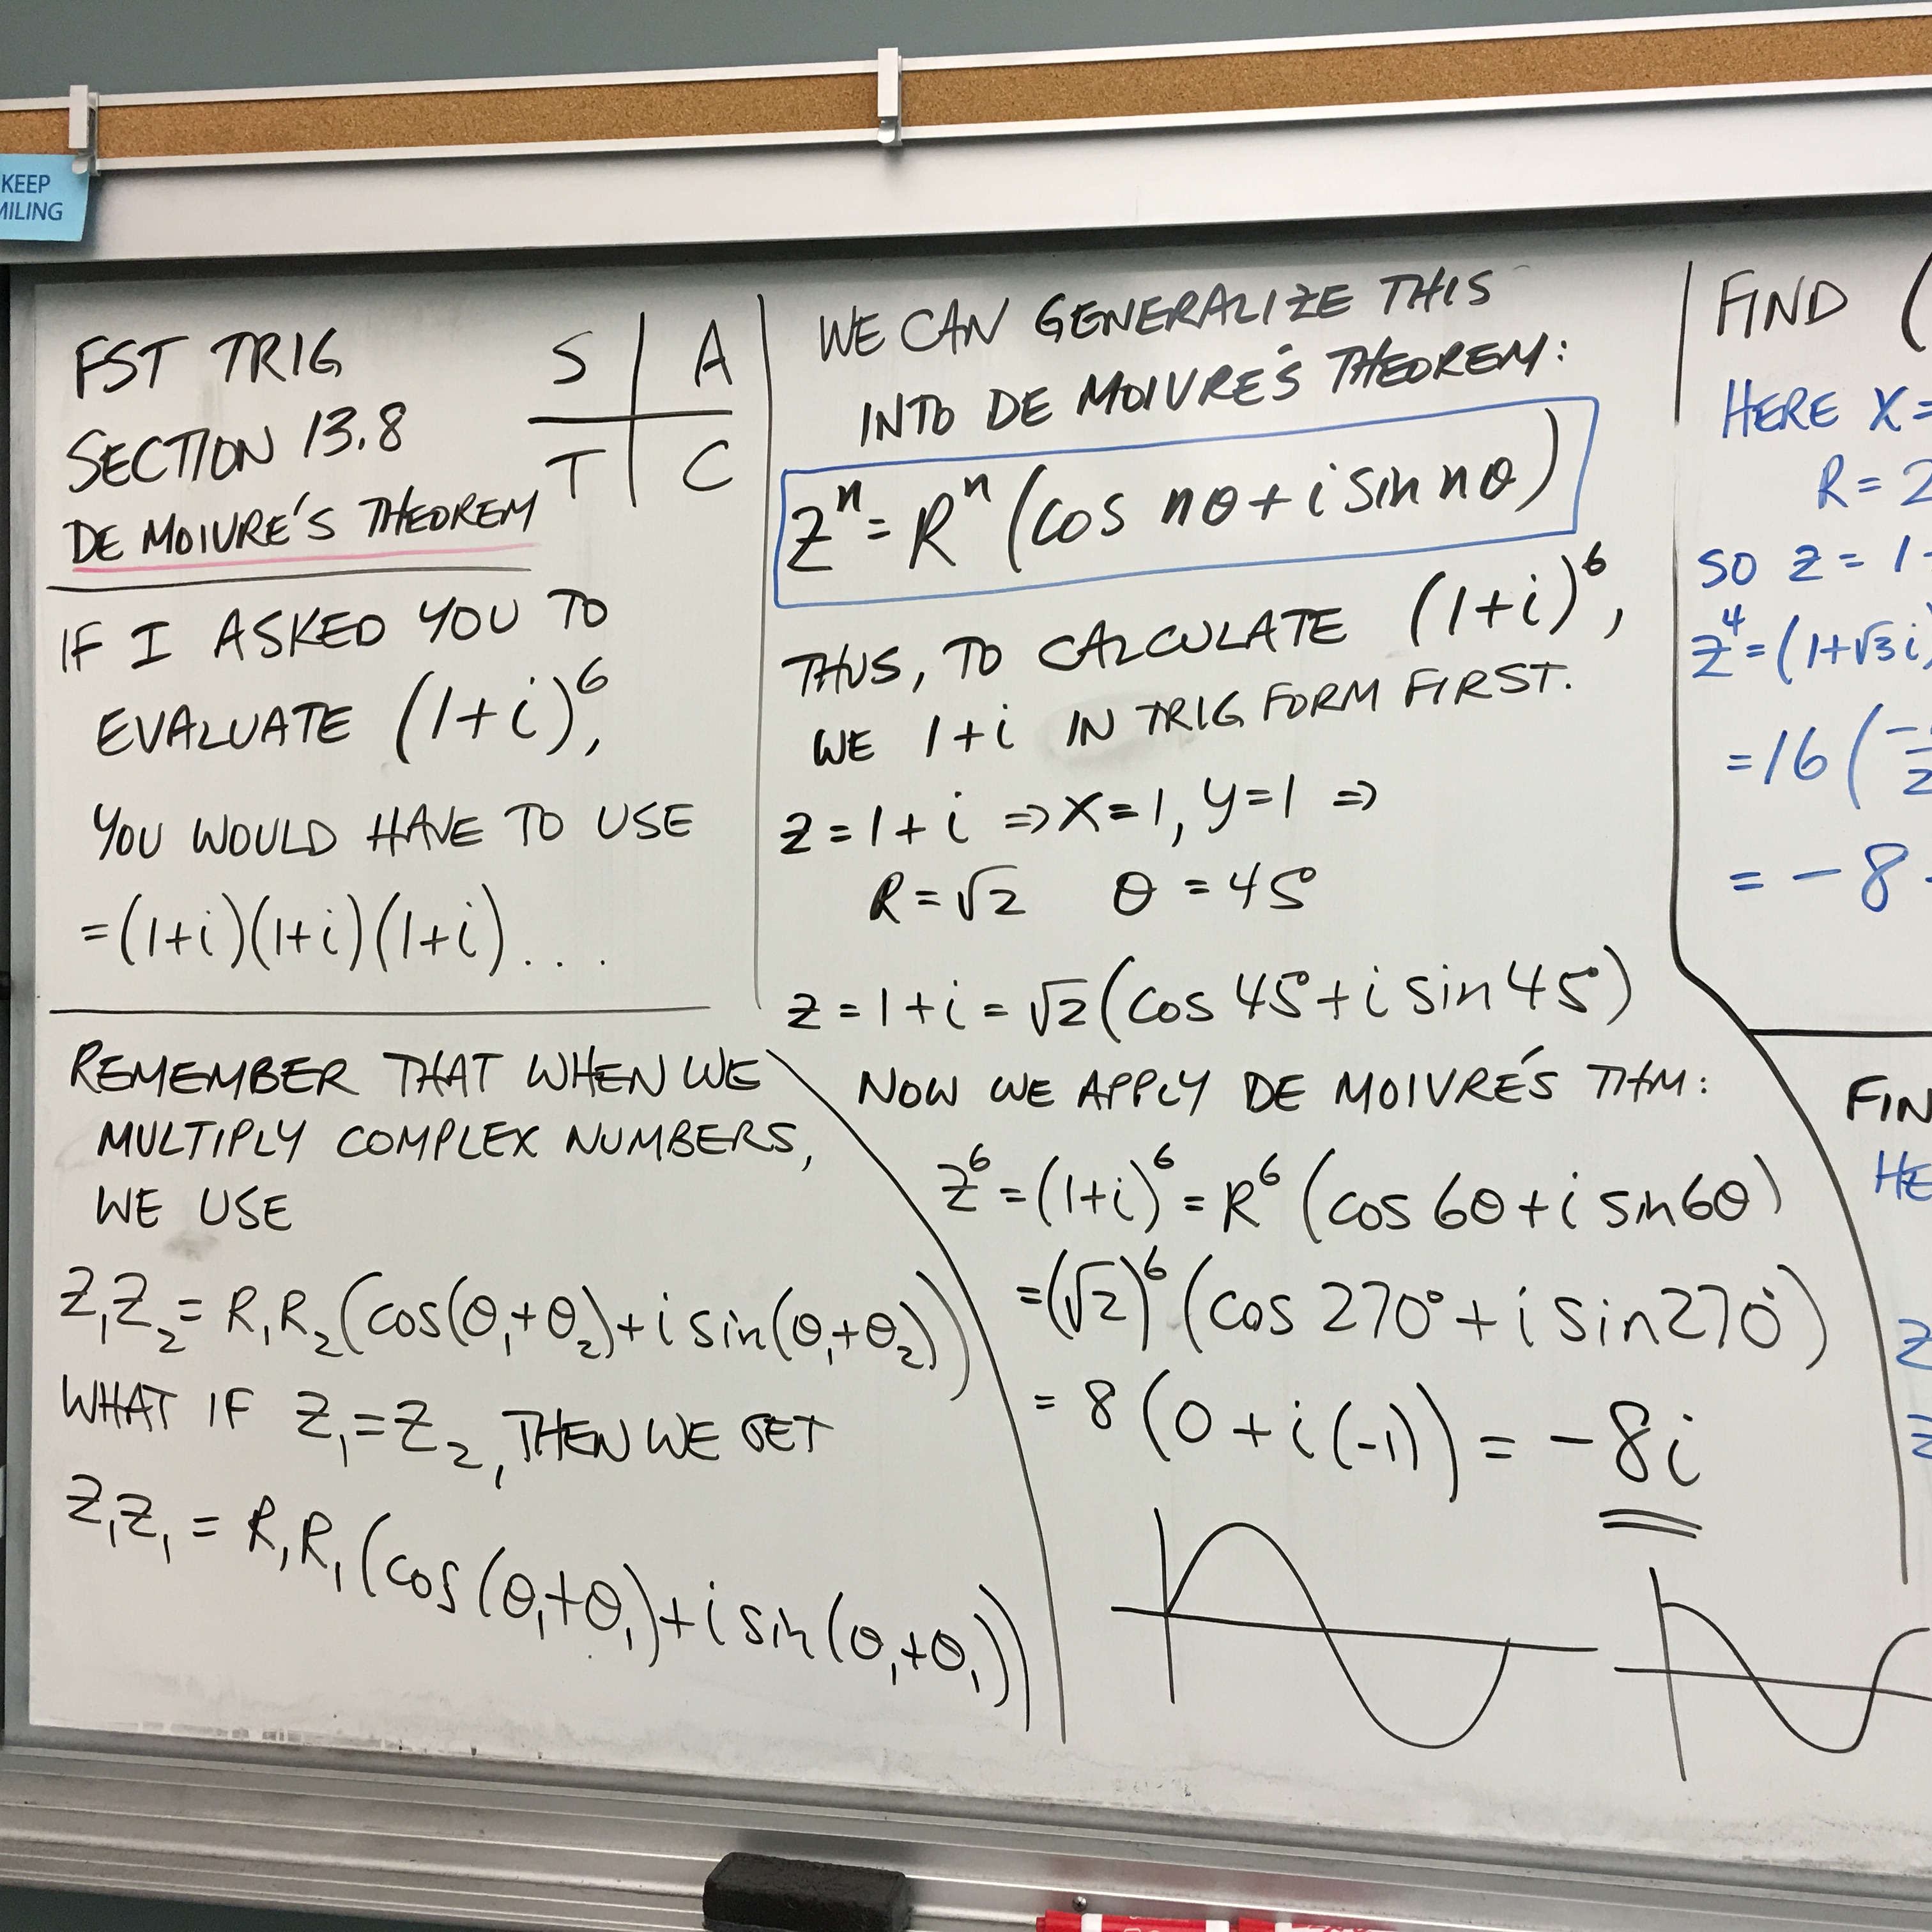 KEEP
MILING
FST TRIG
SECTION 13.8
DE MOIVRE'S THEOREM
S A
T C
IF I ASKED YOU TO
EVALUATE (1+i)⁶,
YOU WOULD HAVE TO USE
=(1+i)(1+i)(1+i)...
REMEMBER THAT WHEN WE
MULTIPLY COMPLEX NUMBERS,
WE USE
Z₁Z₂=R₁R₂(cos(θ₁+θ₂)+i sin(θ₁+θ₂))
WHAT IF Z₁=Z₂, THEN WE GET
Z₁Z₁ = R₁R₁(cos(θ₁+θ₁)+i sin(θ₁+θ₁))
WE CAN GENERALIZE THIS
INTO DE MOIVRE'S THEOREM:
Zⁿ=Rⁿ(cos nθ+i sin nθ)
THUS, TO CALCULATE (1+i)⁶,
WE 1+i IN TRIG FORM FIRST.
z=1+i ⇒X=1, y=1 ⇒
R=√2 θ=45°
z=1+i=√2(cos 45°+i sin 45°)
NOW WE APPLY DE MOIVRE'S THM:
Z⁶=(1+i)⁶=R⁶(cos 6θ+i sin 6θ)
=(√2)⁶(cos 270°+i sin 270°)
= 8(0+i(-1)) = -8i
FIND (
HERE X=
R=2
SO z = 1
z⁴=(1+√3i)
=16(
= -8
FIN
HE
Z
Z